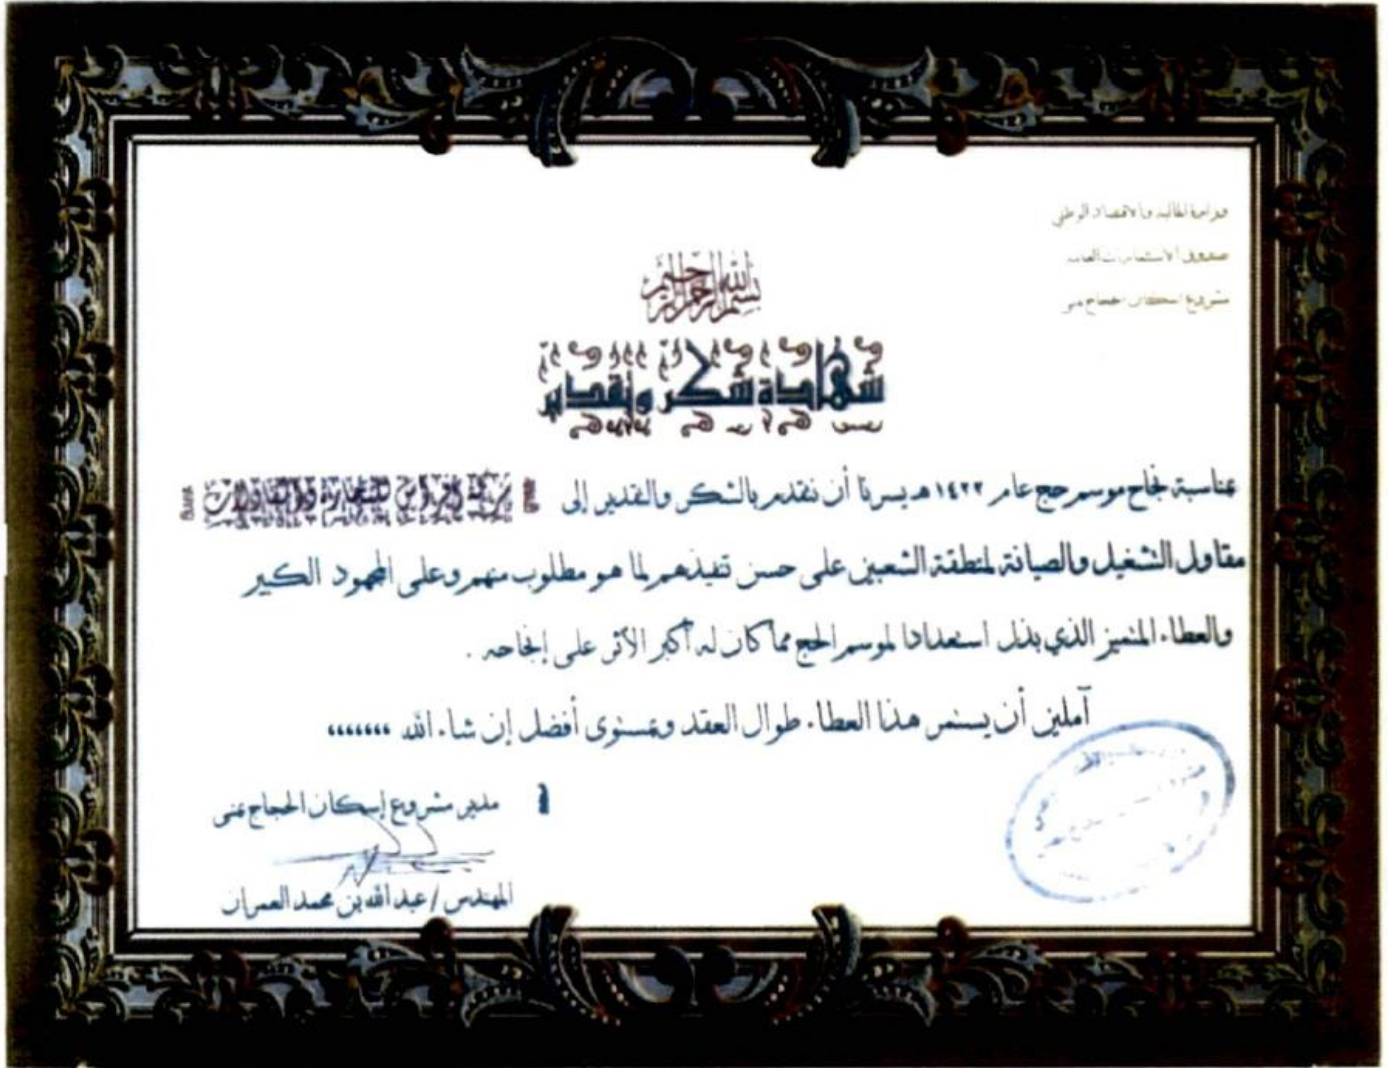 وزارة المالية والاقتصاد الوطني
صندوق الاستثمارات العامة
مشروع اسكان الحجاج بمنى
بسم الله الرحمن الرحيم
شهادة شكر وتقدير
بمناسبة نجاح موسم حج عام ١٤٢٢ هـ يسرنا أن نتقدم بالشكر والتقدير إلى للتجارة والمقاولات
مقاول التشغيل والصيانة لمنطقة الشعبين على حسن تنفيذهم لما هو مطلوب منهم وعلى المجهود الكبير
والعطاء المتميز الذي بذل استعدادا لموسم الحج مما كان له أكبر الأثر على إنجاحه .
آملين أن يستمر هذا العطاء طوال العقد وبمستوى أفضل إن شاء الله ،،،،،،،
مدير مشروع إسكان الحجاج بمنى
المهندس / عبد الله بن محمد العمران